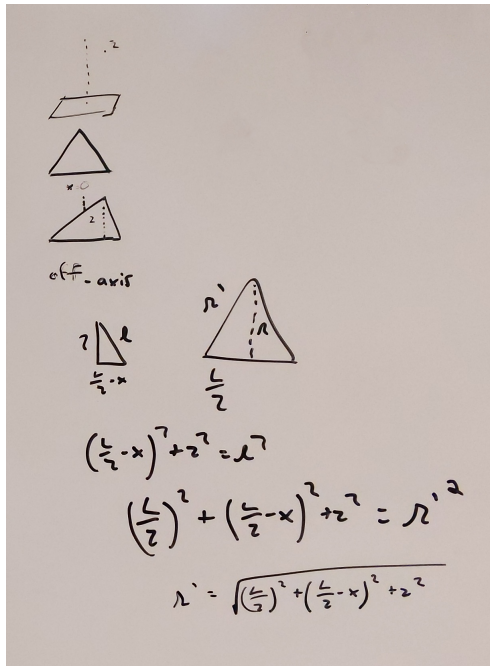 . 2
x=0
2
off-axis
r'
r
z l
L/2 - x
L/2
(L/2 - x)² + z² = l²
(L/2)² + (L/2 - x)² + z² = r'²
r' = √((L/2)² + (L/2 - x)² + z²)